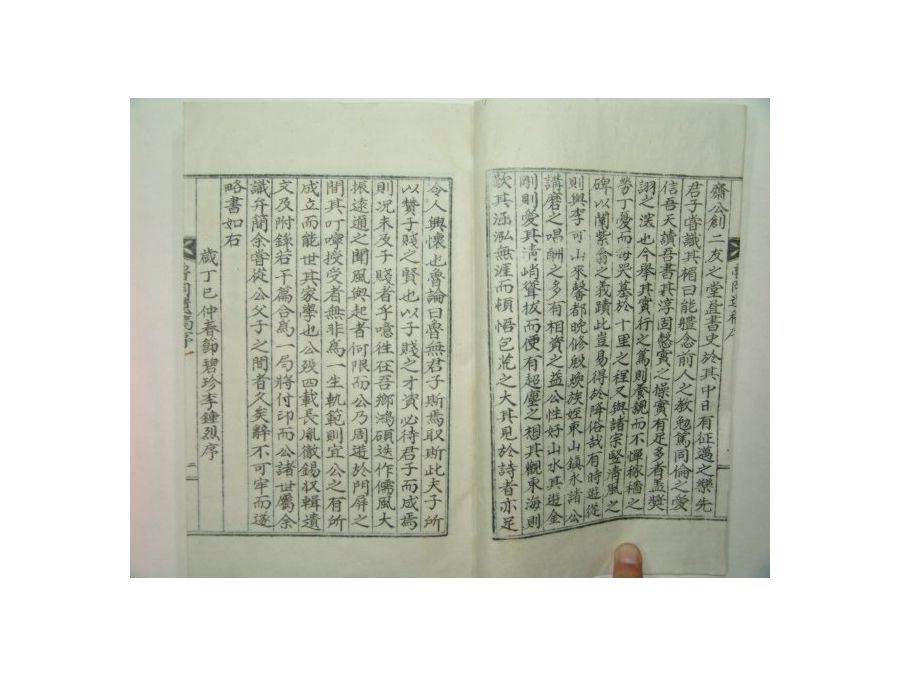 齋公創二友之堂並書史於其中日有征邁之樂先
君子嘗識其楣曰能軆念前人之教勉篤同倫之愛
信吾天讀吾書其淳固慤實之操實有足多者盖獎
詡之深也今舉其實行之篤則養親而不憚稼穡之
勞丁憂而每哭墓於十里之程又與諸宗竪清風之
碑以蘭紫翁之義蹟此豈易得於降俗哉有時遊從
則與李可山來馨都晩修殷煥族姪東山鎭永諸公
講磨之唱酬之多有相資之益公性好山水其遊金
剛則愛其淸峭聳拔而便有超塵之想其觀東海則
歎其涵泓無涯而頓悟包荒之大其見於詩者亦足
令人興懷也魯論曰魯無君子斯焉取斯此夫子所
以贊子賤之賢也以子賤之才資必待君子而成焉
則况未及子賤者乎噫徃在吾鄉鴻碩迭作儒風大
振遠邇之聞風興起者何限而公乃周遊於門屛之
間其叮嚀授受者無非爲一生軌範則宜公之有所
成立而能世其家學也公歿四載長胤徹錫収輯遺
文及附錄若干篇合爲一局將付印而公諸世屬余
識弁簡余嘗從公父子之間者久矣辭不可牢而遂
略書如右
歲丁巳仲春節碧珍李鍾烈序